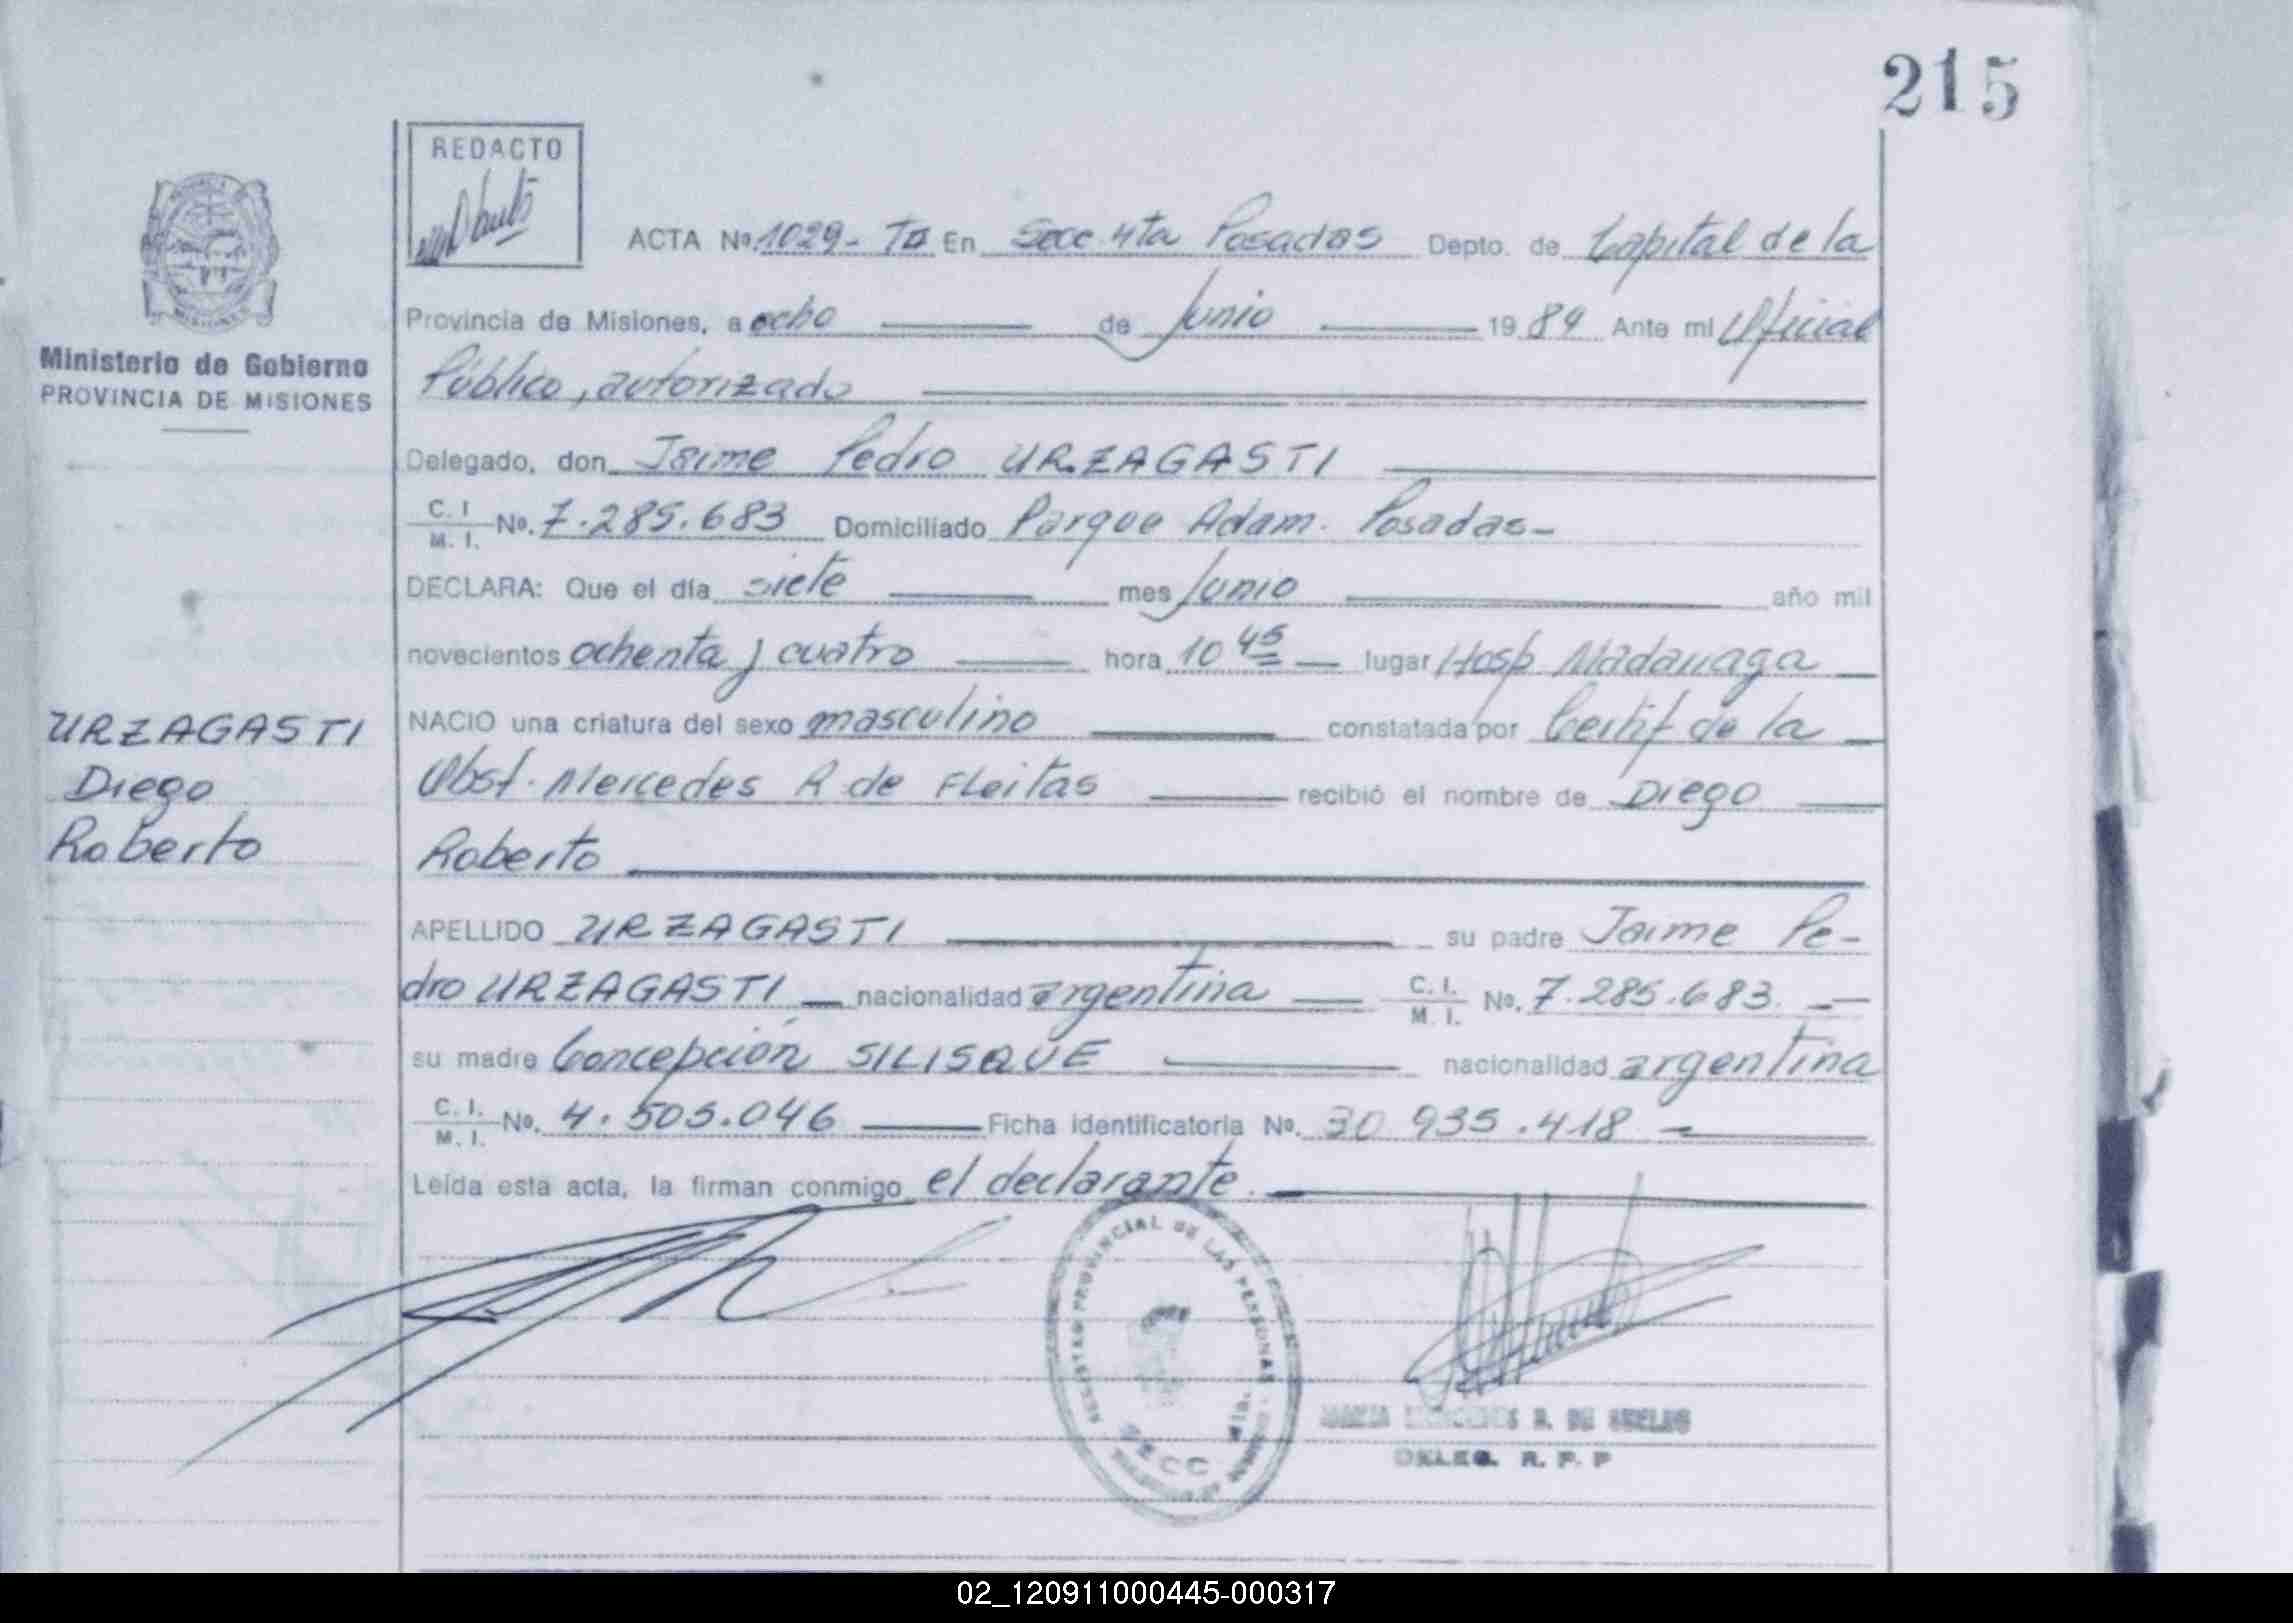 215
REDACTO
ACTA Nº 1029- TII En Secc 4ta Posadas Depto. de Capital de la
Provincia de Misiones, a ocho de Junio 1984 Ante mí Oficial
Público, autorizado
Ministerio de Gobierno
PROVINCIA DE MISIONES
Delegado, don Jaime Pedro URZAGASTI
C. I
M. I. Nº. 7.285.683 Domiciliado Parque Adam. Posadas-
DECLARA: Que el día siete mes Junio año mil
novecientos ochenta y cuatro hora 10 45 lugar Hosp Madariaga
NACIO una criatura del sexo masculino constatada por Certif de la
Obst. Mercedes R de Fleitas recibió el nombre de Diego
Roberto
URZAGASTI
Diego
Roberto
APELLIDO URZAGASTI su padre Jaime Pe-
dro URZAGASTI nacionalidad argentina C. I.
M. I. Nº. 7.285.683.
su madre Concepción SILISQUE nacionalidad argentina
C. I.
M. I. Nº. 4.505.046 Ficha identificatoria Nº. 30 935.418
Leída esta acta, la firman conmigo el declarante.
REGISTRO PROVINCIAL DE LAS PERSONAS
SECC
R. DE
DELEG. R. P. P
02_120911000445-000317